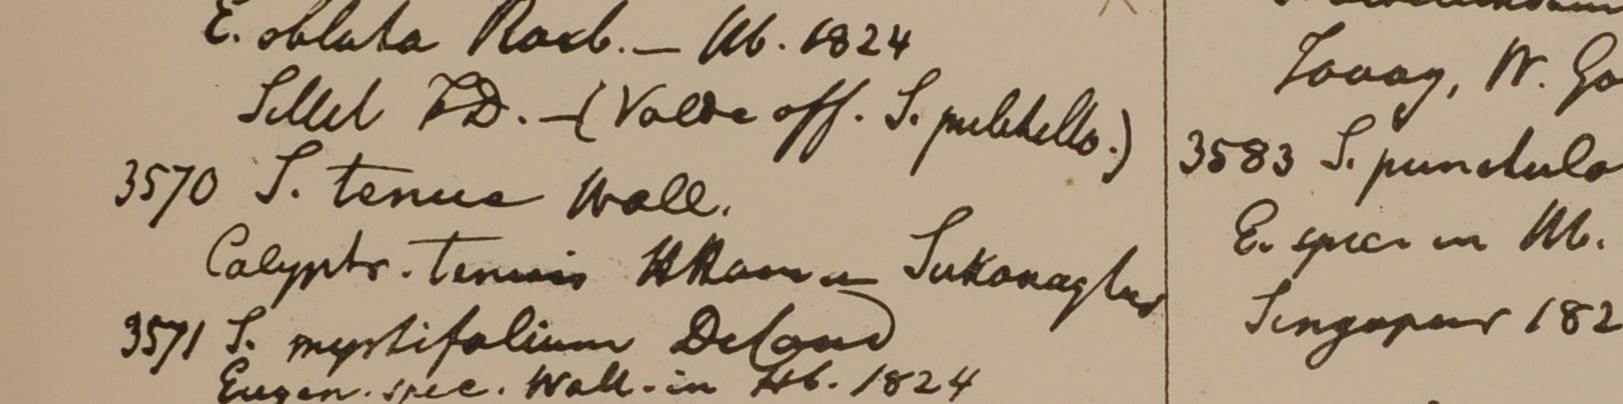 E. oblata Roxb. — Hb. 1824
Sillet F.D. — (Valde aff. S. pulchello.)
3570 S. tenue Wall.
Calyptr. tenuis HHam in
3571 S. myrtifolium DeCand
Eugen. spec. Wall. in Hb. 1824
Tavay, W. Go
3583 S. punctula
E. spec. in Hb.
Singapur 182